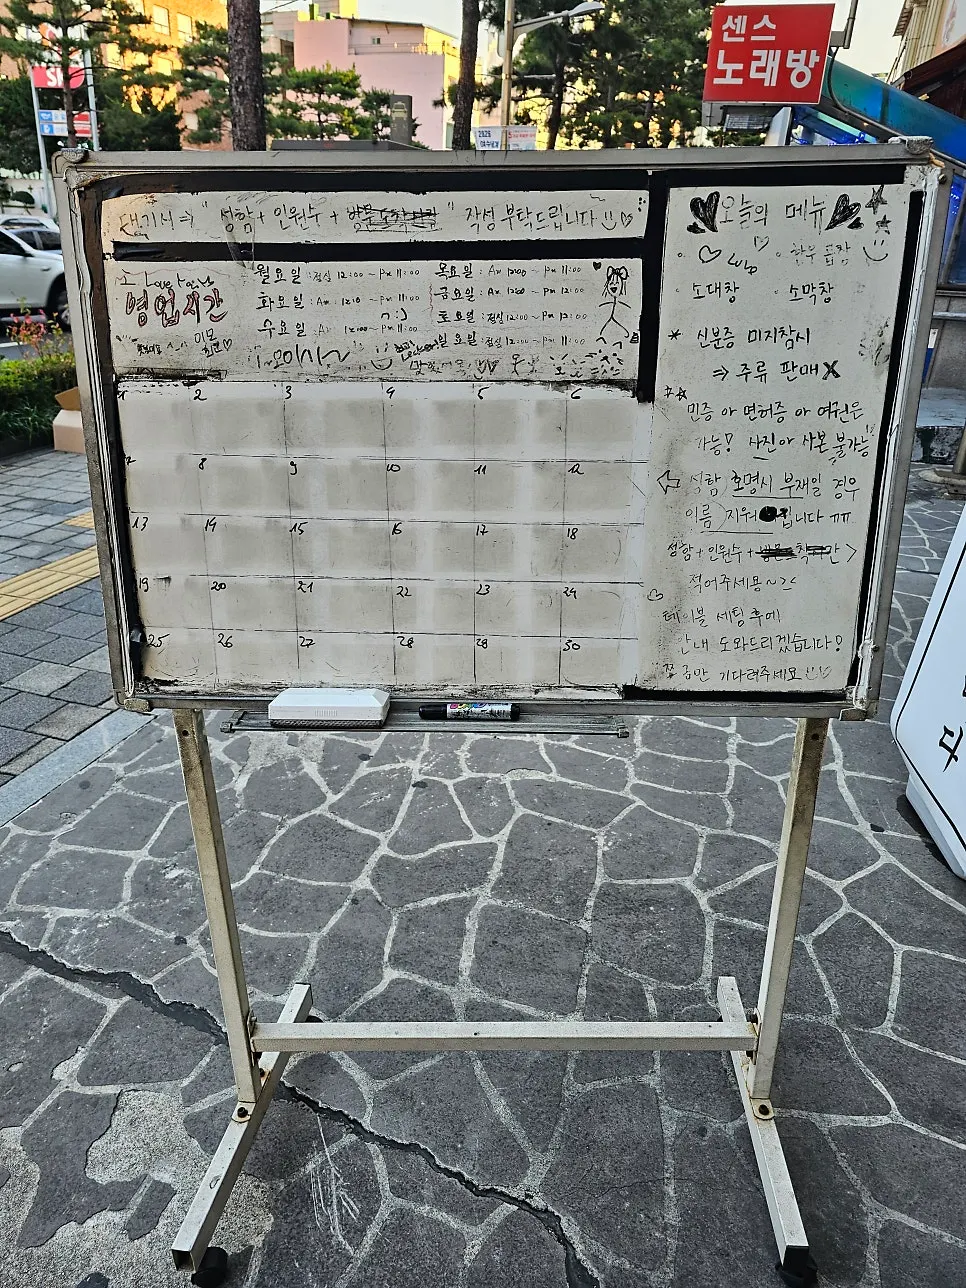 센스
노래방
대기시 ⇒ " 성함 + 인원수 + " 작성 부탁드립니다
영업시간
월요일 : 점심 12:00 ~ PM 11:00
화요일 : AM 12:00 ~ PM 11:00
수요일 : AM 12:00 ~ PM 11:00
목요일 : AM 12:00 ~ PM 11:00
금요일 : AM 12:00 ~ PM 11:00
토요일 : 점심 12:00 ~ PM 12:00
일요일 : 점심 12:00 ~ PM 11:00
1 2 3 4 5 6
7 8 9 10 11 12
13 14 15 16 17 18
19 20 21 22 23 24
25 26 27 28 29 30
오늘의 메뉴
한우 곱창
소대창 소막창
* 신분증 미지참시
⇒ 주류 판매 X
민증 아 면허증 아 여권은
가능! 사진아 사본 불가능
호명시 부재일 경우
이름 지워 됩니다 ㅠㅠ
성함 + 인원수 +
적어주세용~><
테이블 세팅 후에
안내 도와드리겠습니다!
쪼금만 기다려주세요
다